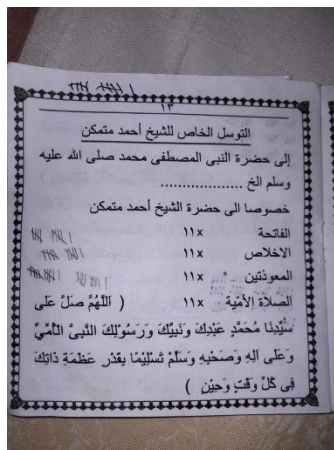 ١٣
التوسل الخاص للشيخ أحمد متمكن
إلى حضرة النبى المصطفى محمد صلى الله عليه
وسلم الخ ....................
خصوصا الى حضرة الشيخ أحمد متمكن
الفاتحة ×١١
الاخلاص ×١١
المعوذتين ×١١
الصلاة الأمية ×١١ ( اَللّٰهُمَّ صَلِّ عَلَى
سَيِّدِنَا مُحَمَّدٍ عَبْدِكَ وَنَبِيِّكَ وَرَسُوْلِكَ النَّبِيِّ الْأُمِّيِّ
وَعَلَى آلِهِ وَصَحْبِهِ وَسَلِّمْ تَسْلِيْمًا بِقَدْرِ عَظَمَةِ ذَاتِكَ
فِى كُلِّ وَقْتٍ وَحِيْنٍ )